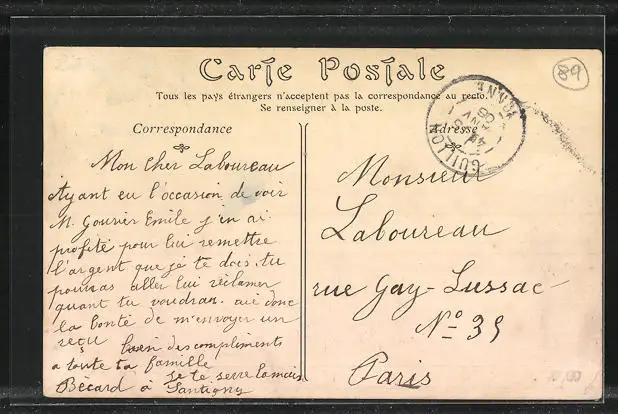 Carte Postale
Tous les pays étrangers n'acceptent pas la correspondance au recto.
Se renseigner à la poste.
Correspondance
Mon cher Laboureau
Ayant eu l'occasion de voir
M. Gourier Emile j'en ai
profité pour lui remettre
l'argent que je te dois, tu
pourras aller lui réclamer
quant tu voudras. aie donc
la bonté de m'envoyer un
reçu
bien des compliments
a toute ta famille
Je te serre la main
Bécard à Santigny
Adresse
Monsieur
Laboureau
rue Gay-Lussac
No 39
Paris
GUILLON
YONNE
JANV
06
89